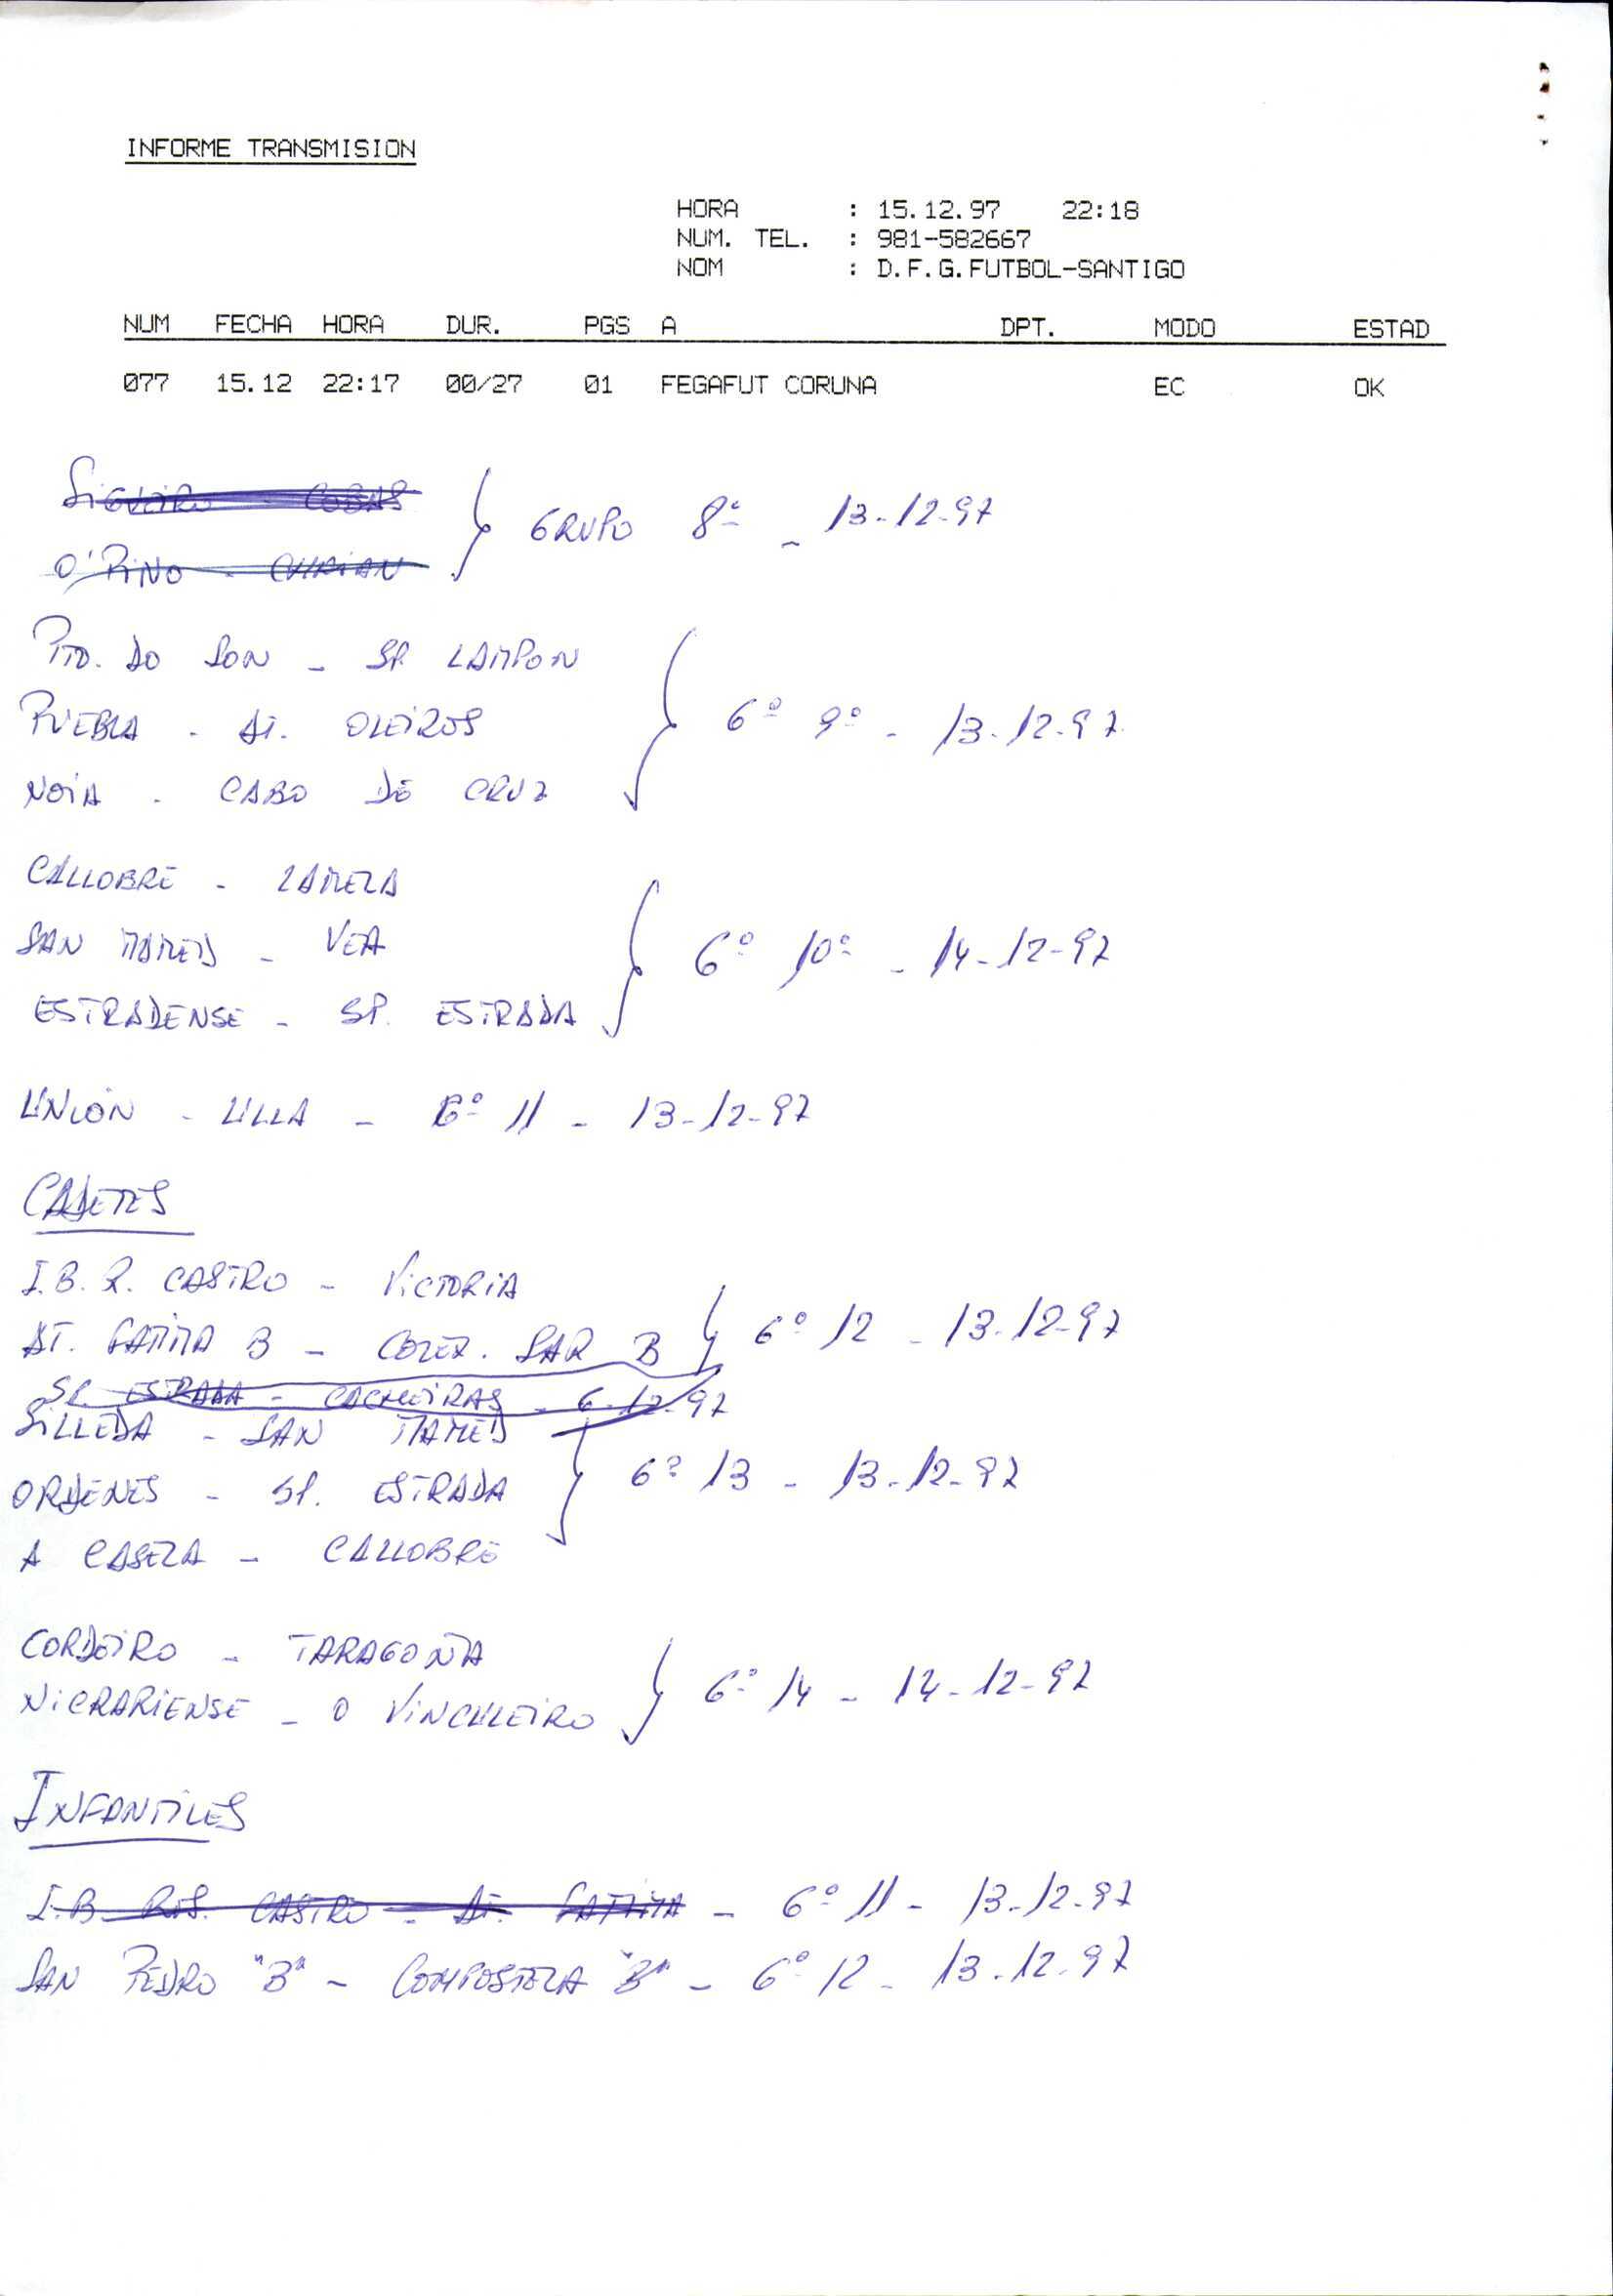 INFORME TRANSMISION
HORA : 15.12.97 22:18
NUM. TEL. : 981-582667
NOM : D.F.G.FUTBOL-SANTIGO
NUM FECHA HORA DUR. PGS A DPT. MODO ESTAD
077 15.12 22:17 00/27 01 FEGAFUT CORUNA EC OK
SIGUEIRO - COBAS
O'PINO - CHRIAN
GRUPO 8º - 13-12-97
PTO. DO SON - SP. LAMPON
PUEBLA - AT. OLEIROS
NOIA - CABO DE CRUZ
Gº 9º - 13-12-97
CALLOBRE - LAMELA
SAN MAMED - VEA
ESTRADENSE - SP. ESTRADA
Gº 10º - 14-12-97
UNION - ULLA - Gº 11 - 13-12-97
CADETES
I.B. R. CASTRO - VICTORIA
AT. FATIMA B - CONX. SAR B
Gº 12 - 13-12-97
SP. ESTRADA - CACHEIRAS - 6-12-97
SILLEDA - SAN MAMED
ORDENES - SP. ESTRADA
A CASEZA - CALLOBRE
Gº 13 - 13-12-97
CORDEIRO - TARAGOÑA
NICRARIENSE - O VINCHEIRO
Gº 14 - 14-12-97
INFANTILES
I.B. ROS. CASTRO - AT. FATIMA - Gº 11 - 13-12-97
SAN PEDRO "B" - COMPOSTELA "B" - Gº 12 - 13-12-97